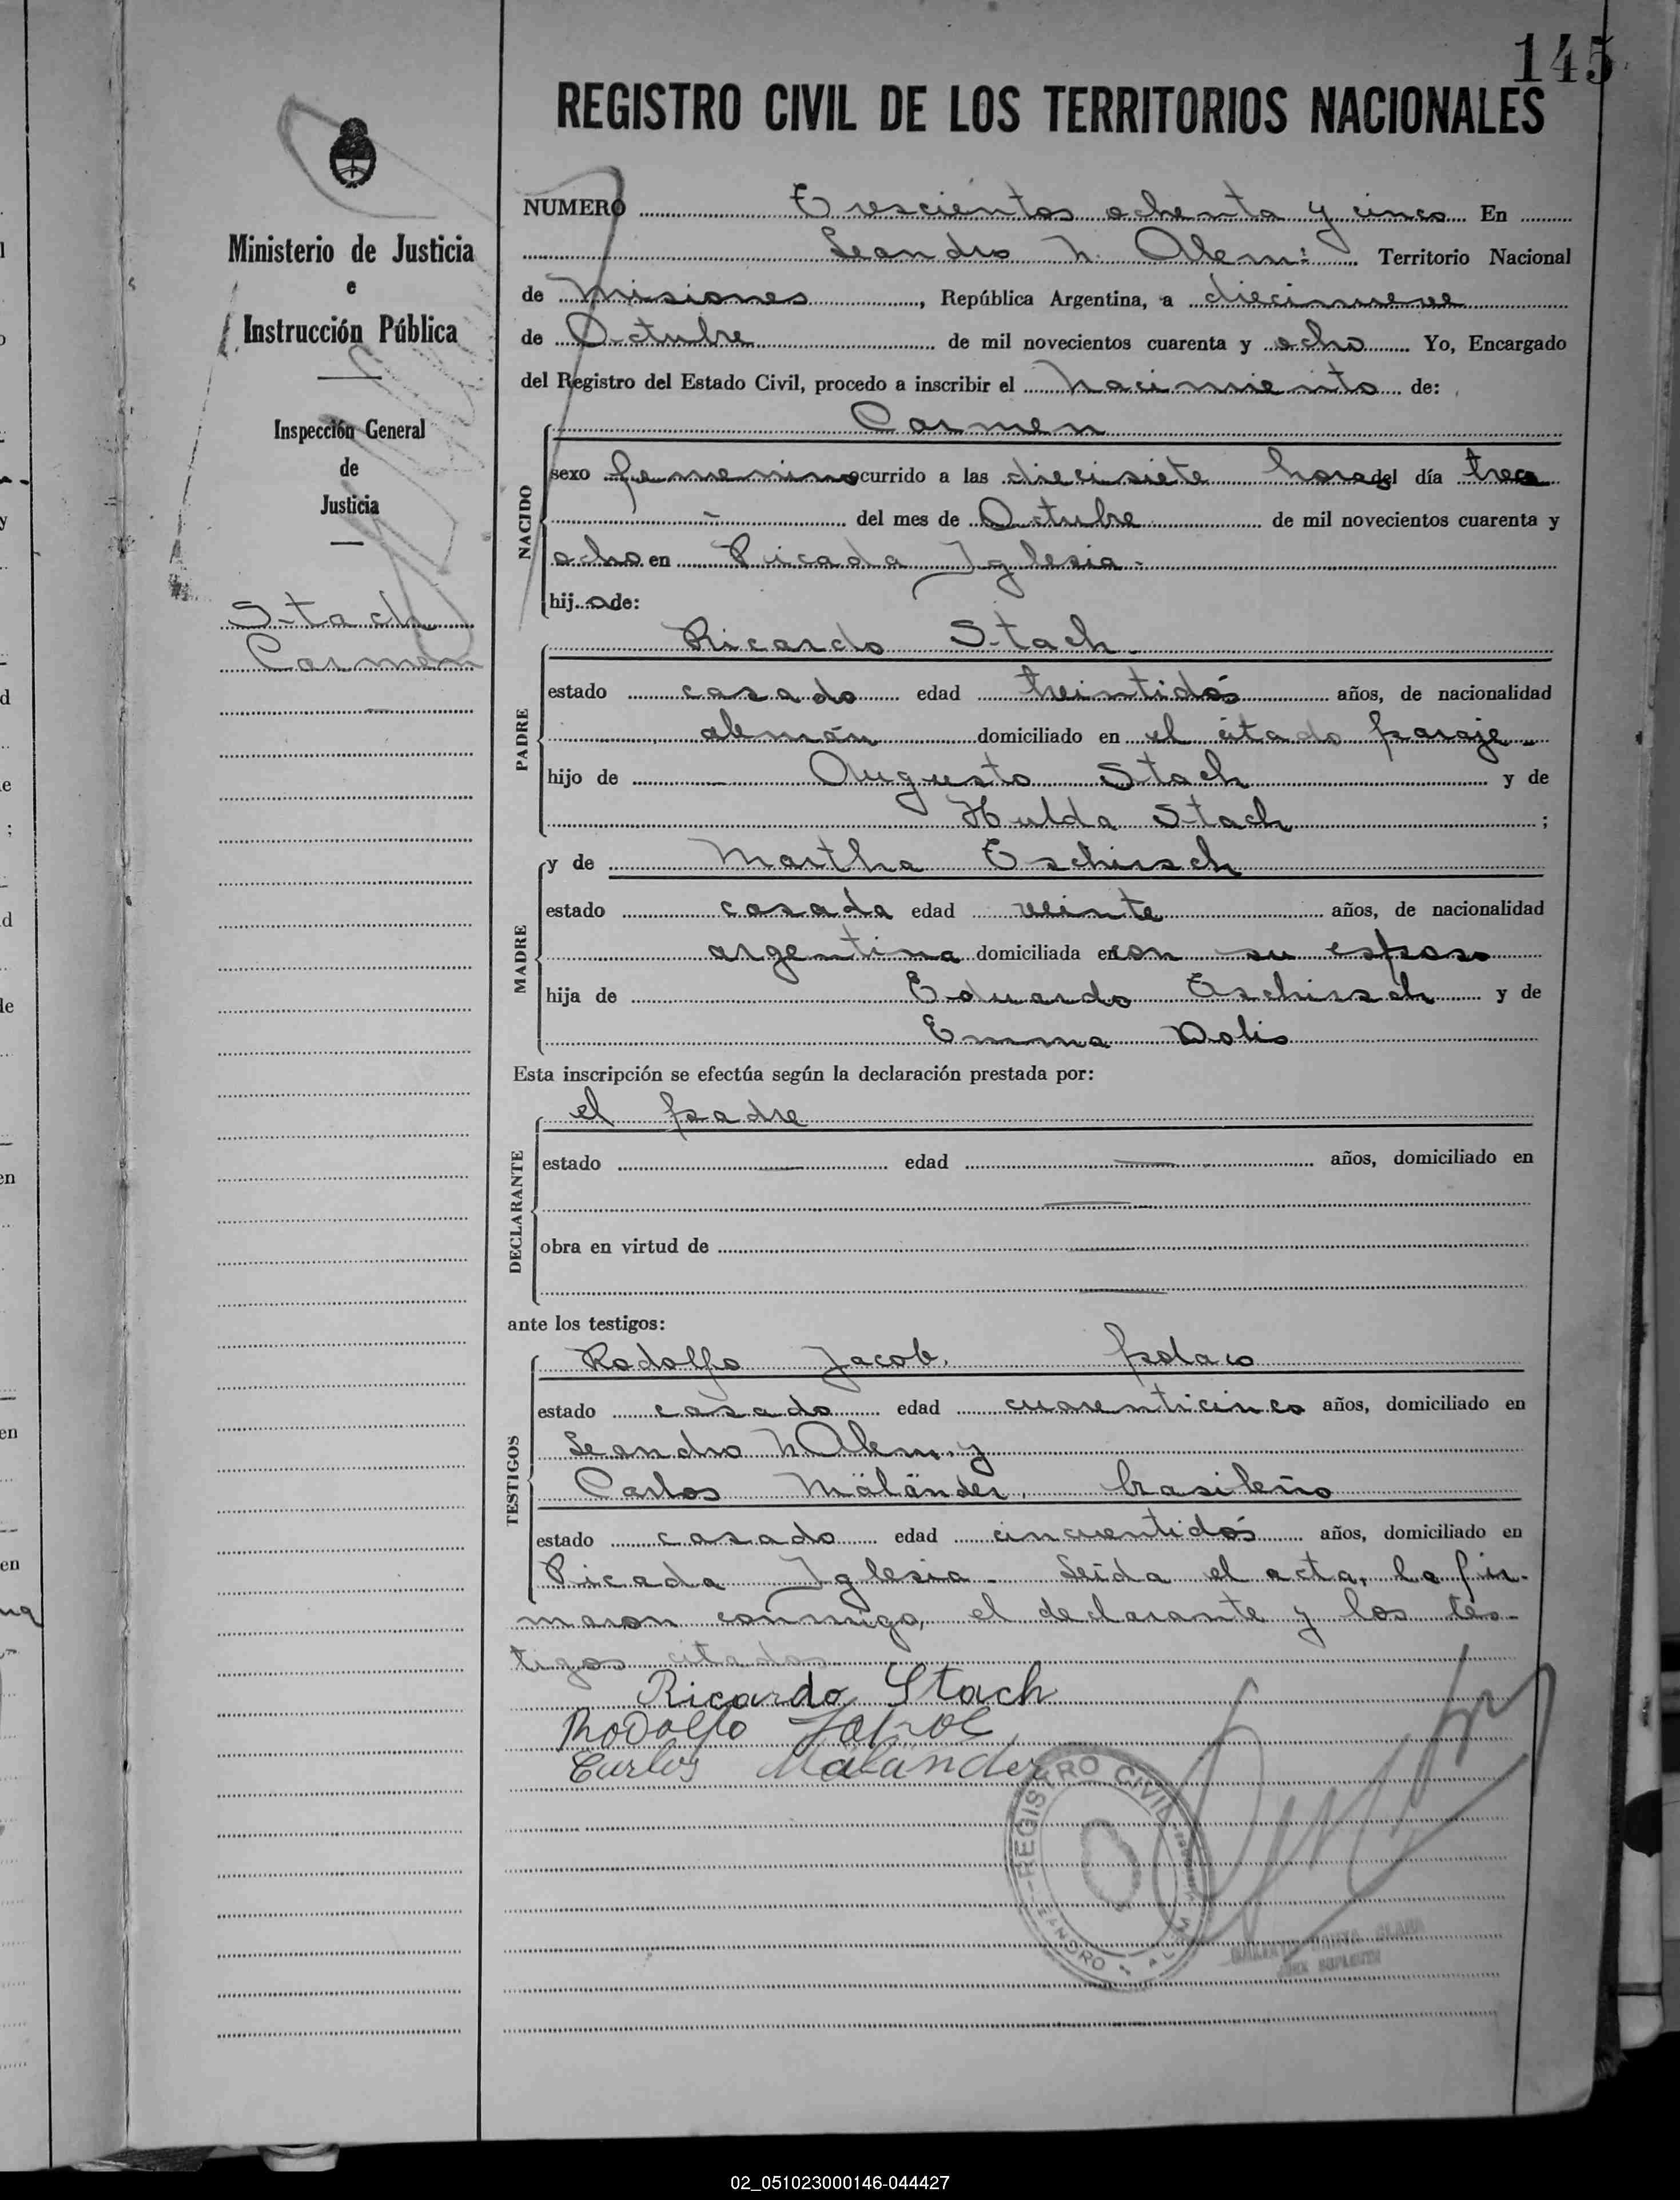 145
REGISTRO CIVIL DE LOS TERRITORIOS NACIONALES
Ministerio de Justicia
e
Instrucción Pública
Inspección General
de
Justicia
Stach
Carmen
NUMERO Trescientos ochenta y cinco En
Leandro N. Alem: Territorio Nacional
de Misiones, República Argentina, a diecinueve
de Octubre de mil novecientos cuarenta y ocho Yo, Encargado
del Registro del Estado Civil, procedo a inscribir el nacimiento de:
Carmen
NACIDO
sexo femenino ocurrido a las diecisiete horas del día trece
del mes de Octubre de mil novecientos cuarenta y
ocho en Picada Iglesia.
hij a de:
Ricardo Stach
PADRE
estado casado edad treintidós años, de nacionalidad
alemán domiciliado en el citado paraje
hijo de Augusto Stach y de
Hulda Stach ;
MADRE
y de Martha Tschirsch
estado casada edad veinte años, de nacionalidad
argentina domiciliada en con su esposo
hija de Eduardo Tschirsch y de
Emma
Esta inscripción se efectúa según la declaración prestada por:
el padre
DECLARANTE
estado edad años, domiciliado en
obra en virtud de
ante los testigos:
TESTIGOS
Rodolfo Jacob, polaco
estado casado edad cuarenticinco años, domiciliado en
Leandro N Alem, y
Carlos Mäländer, brasileño
estado casado edad cincuentidós años, domiciliado en
Picada Iglesia. Leída el acta, la fir-
maron conmigo, el declarante y los tes-
tigos citados
Ricardo Stach
Rodolfo
Carlos Maländer
REGISTRO CIVIL
LEANDRO N. ALEM
SANTA CLARA
JUEZ SUPLENTE
02_051023000146-044427